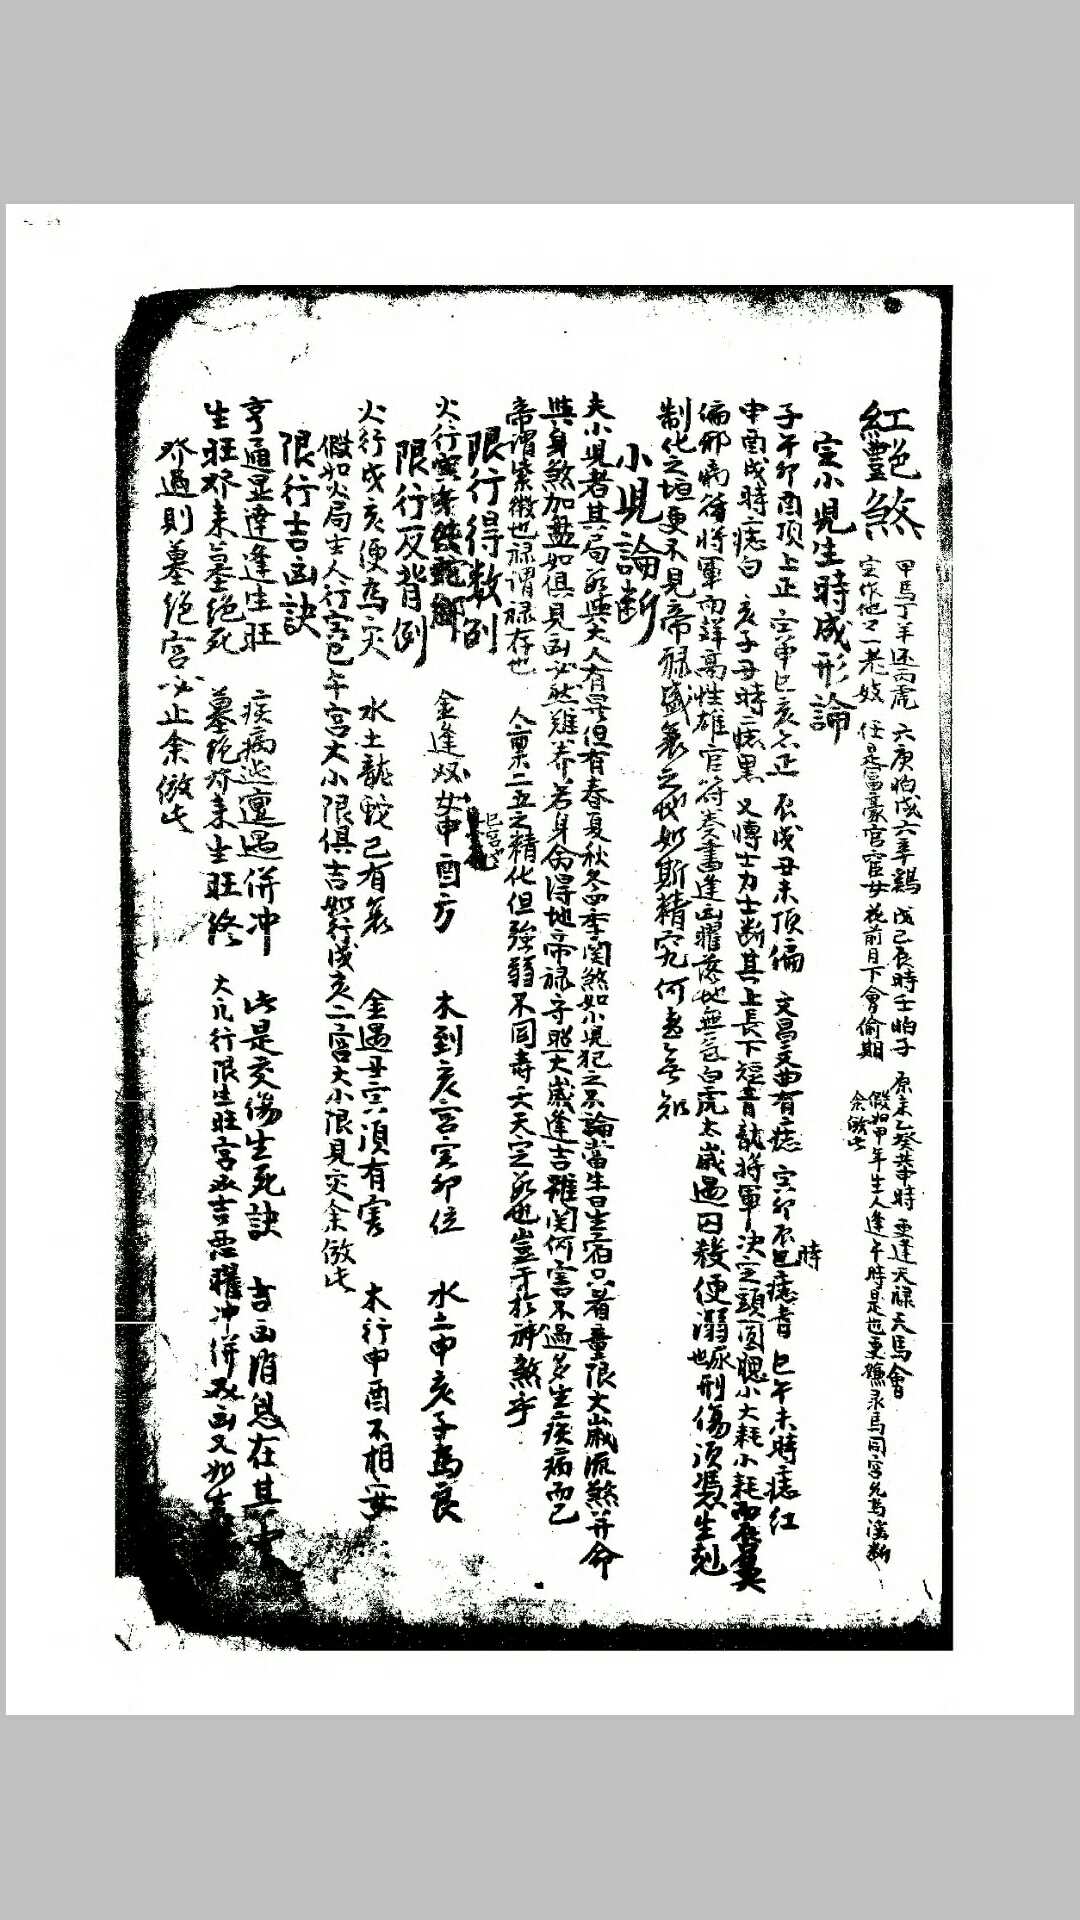 紅豔煞 甲馬丁羊还丙虎 六庚怕戌六辛鷄 戊己辰時壬怕子 原来乙癸共申時 更逢天祿天馬會
定作他之一老妓 任是富豪官宦女 花前月下會偷期 假如甲年生人逢午時是也更 禄馬同宮兄馬 断
余倣此
定小児生時成形論
子午卯酉頂上正 寅申巳亥亦正 辰戌丑未頂偏 文昌文曲有痣 寅卯辰時痣青 巳午未時痣紅
申酉戌時痣白 亥子丑時痣黒 又博士力士断其上長下短青龍将軍決定頭圓 小大耗小耗
偏邪病符将軍而 高性雄官符奏書逢凶曜落地無氣白虎太歲遇囚殺便溺 也刑傷須憑生剋
制化之垣更不見帝祿盛衰之 如斯精究何患無知
小児論断
夫小児者其局所與大人有异但有春夏秋冬四季関煞如小児犯之不論當生星宿只看童限大歲流煞并命
與身煞加盤如俱見凶必然難养若身命得地帝祿守照大歲逢吉雖関何害不過多生疾病而已
帝謂紫微也禄謂禄存也 人禀二五之精化但強弱不同壽夭天定所也豈于於神煞乎
限行得数例
火行寅 金逢 申酉方 木到亥宮寅卯位 水土申亥子為良
巳宮
限行反背例
火行戌亥便為灾 水土龍蛇已有衰 金遇丑寅須有害 木行申酉不相安
假如火局生人行寅巳午宮大小限俱吉如行戌亥二宮大小限見灾余倣此
限行吉凶訣
亨通显達逢生旺 疾病迍邅遇併冲 此是交傷生死訣 吉凶消息在其中
生旺 来墓绝死 墓绝 来生旺终 大凡行限生旺宮 吉 曜冲併 凶又如
過則墓绝宮必止余倣此